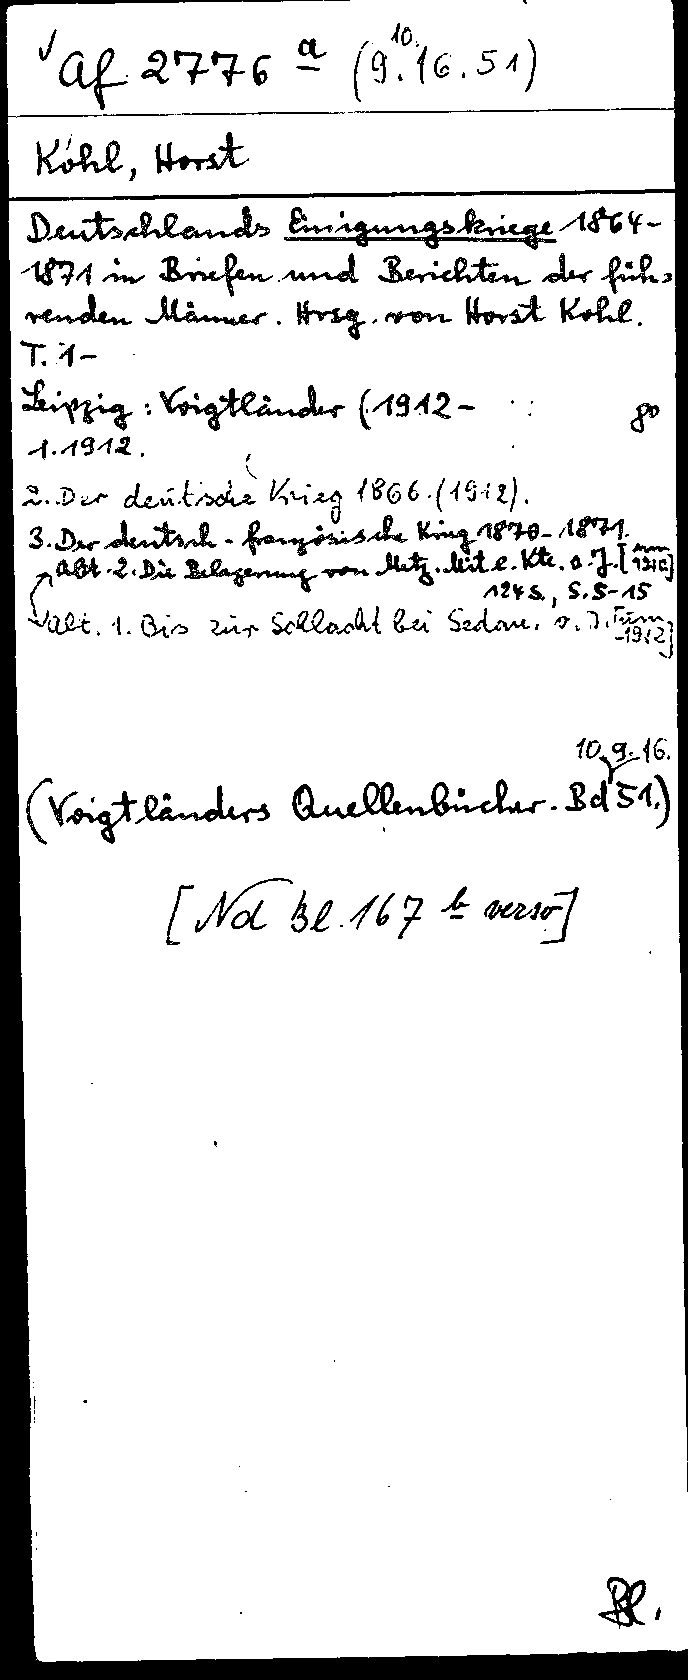 Af 2776 a (9.10.16.51)
Kohl, Horst
Deutschlands Einigungskriege 1864-
1871 in Briefen und Berichten der füh-
renden Männer. Hrsg. von Horst Kohl.
T. 1-
Leipzig: Voigtländer (1912-
8°
1.1912.
2. Der deutsche Krieg 1866. (1912).
3. Der deutsch-französische Krieg 1870-1871.
Abt. 2. Die Belagerung von Metz. Mit e. Kte. o. J. [um 1912]
124 S., S. 5-15
Abt. 1. Bis zur Schlacht bei Sedan. o. J. [um 1912]
10. 9. 16.
(Voigtländers Quellenbücher. Bd 51.)
[Nd Bl. 167 b verso]